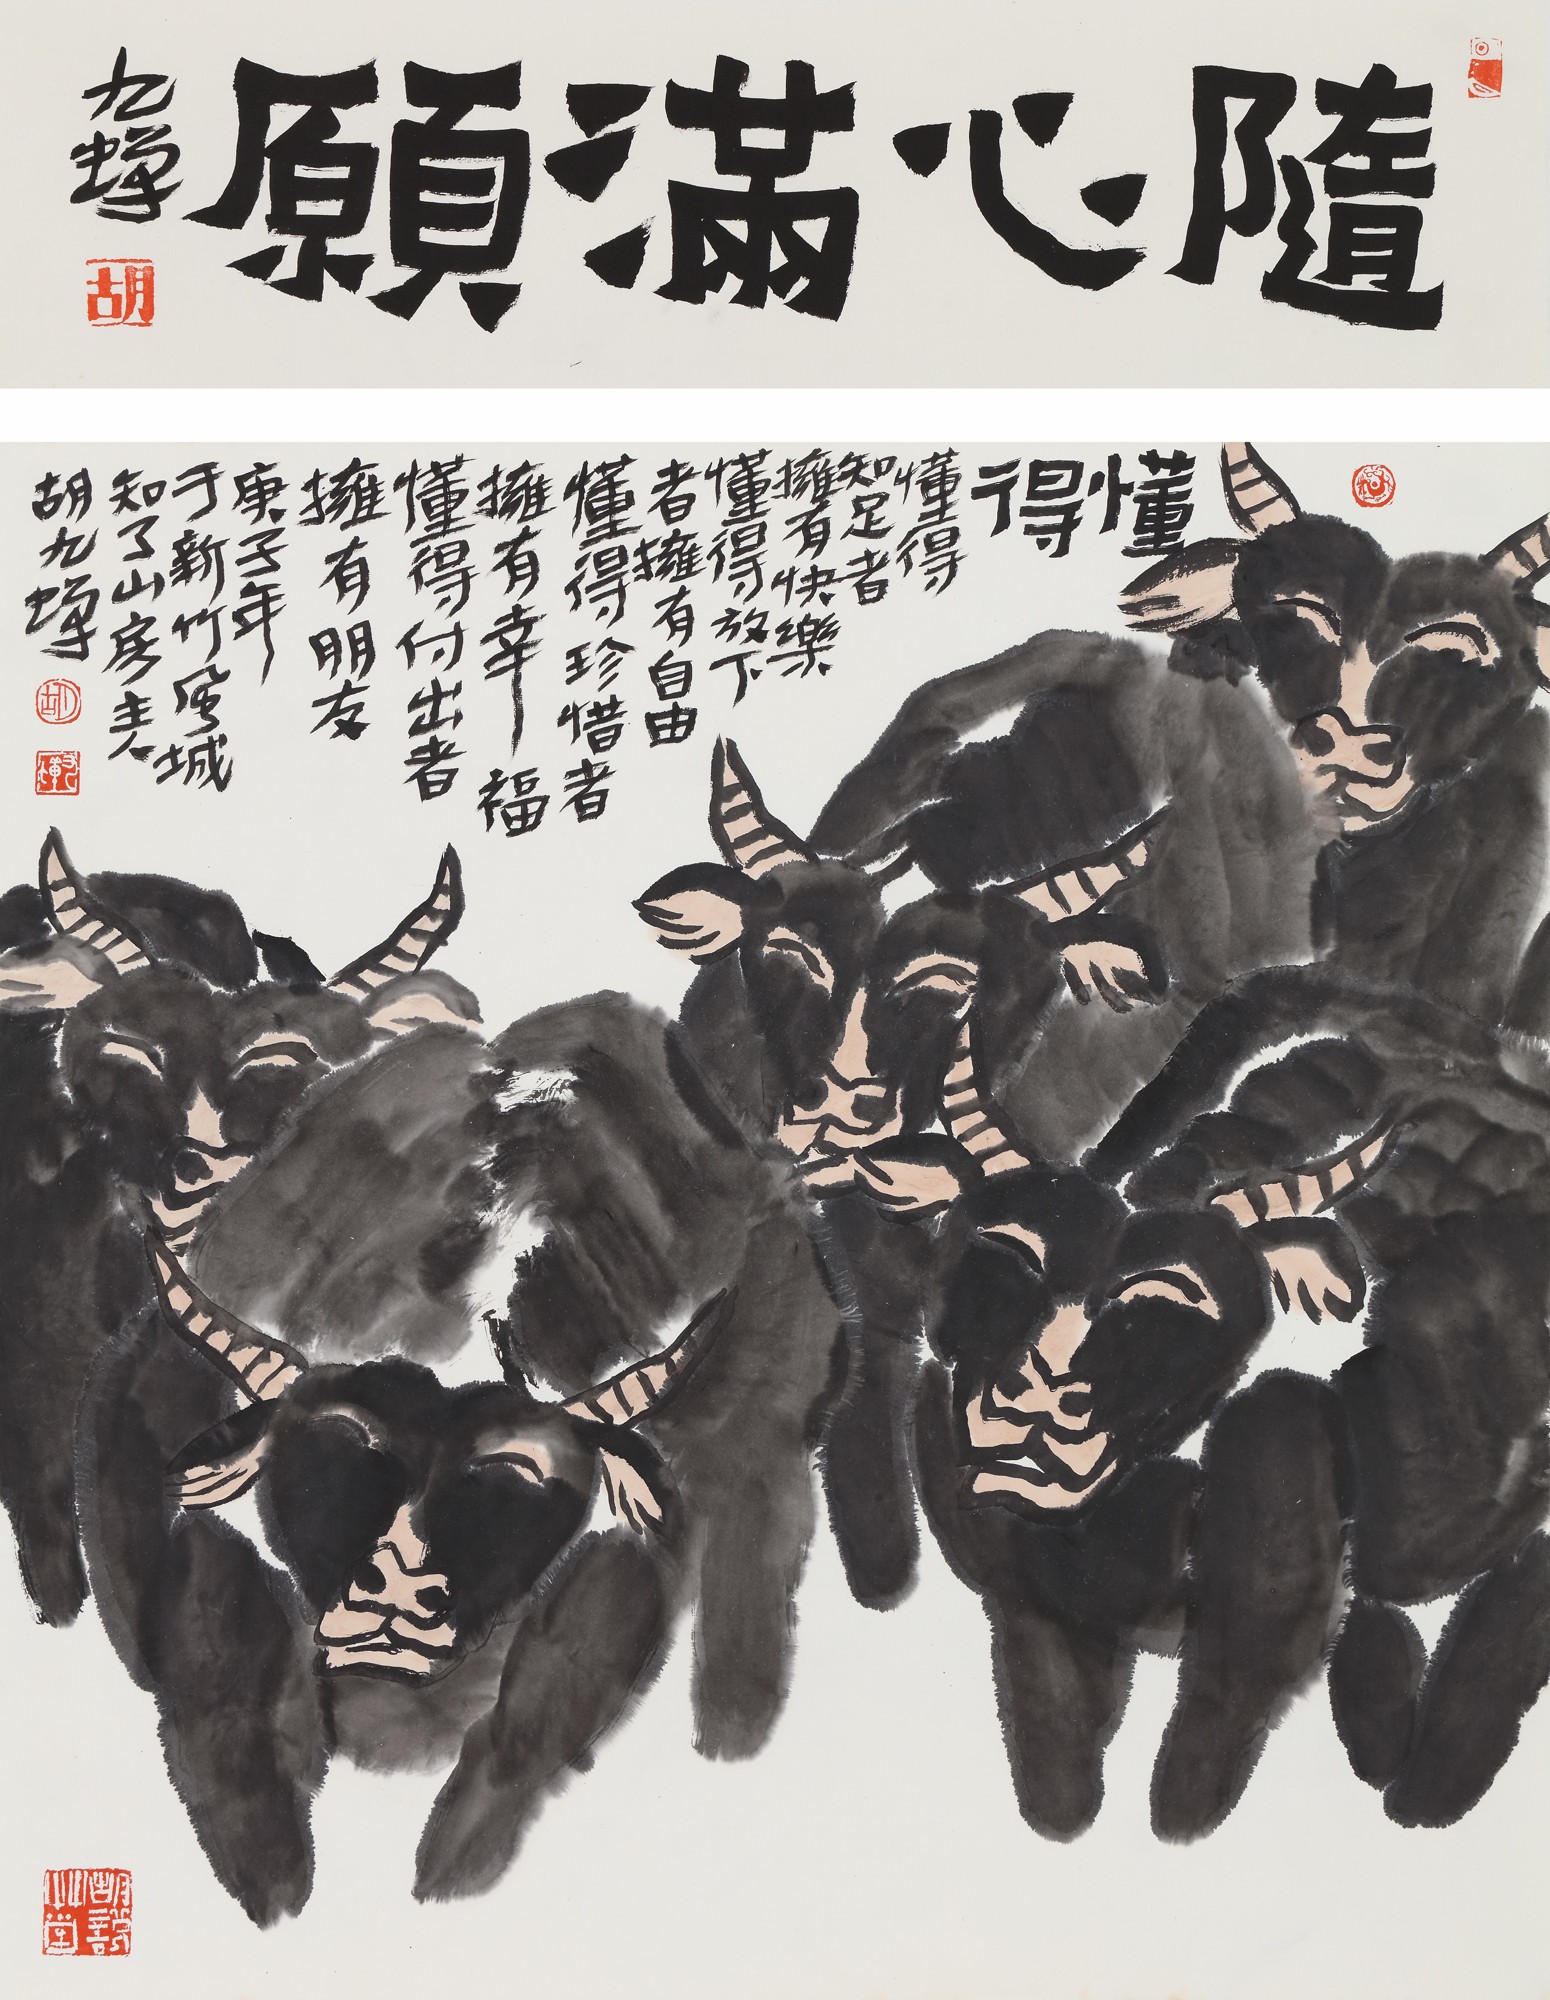 隨心滿願
九蟬
胡
懂
得
懂得
知足者
擁有快樂
懂得放下
者擁有自由
懂得珍惜者
擁有幸福
懂得付出者
擁有朋友
庚子年
于新竹風城
知了山房主人
胡九蟬
胡